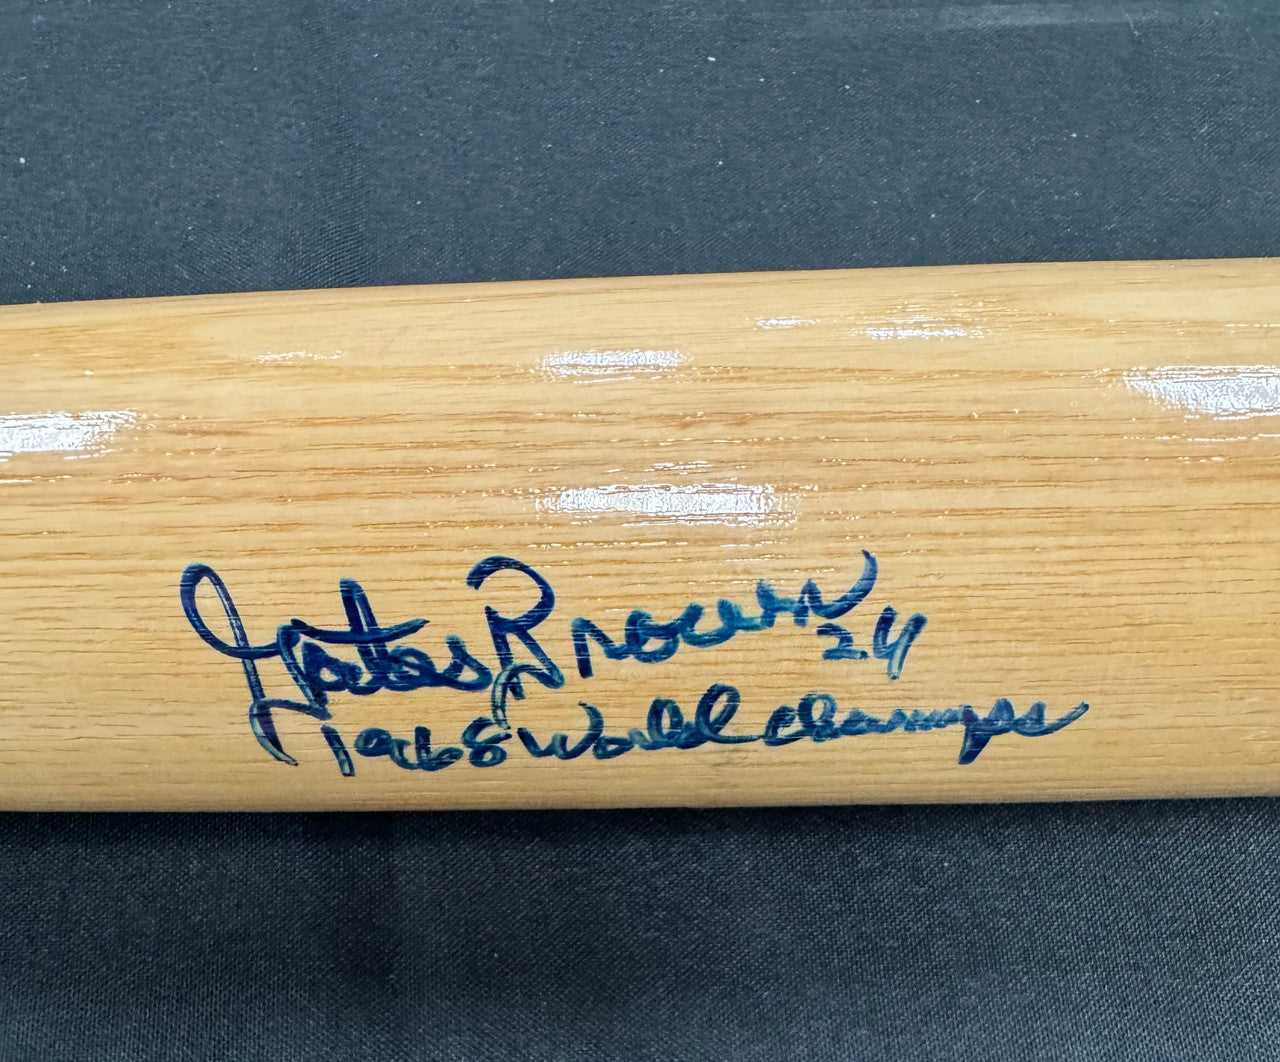 Gates Brown
24
1968 World Champs